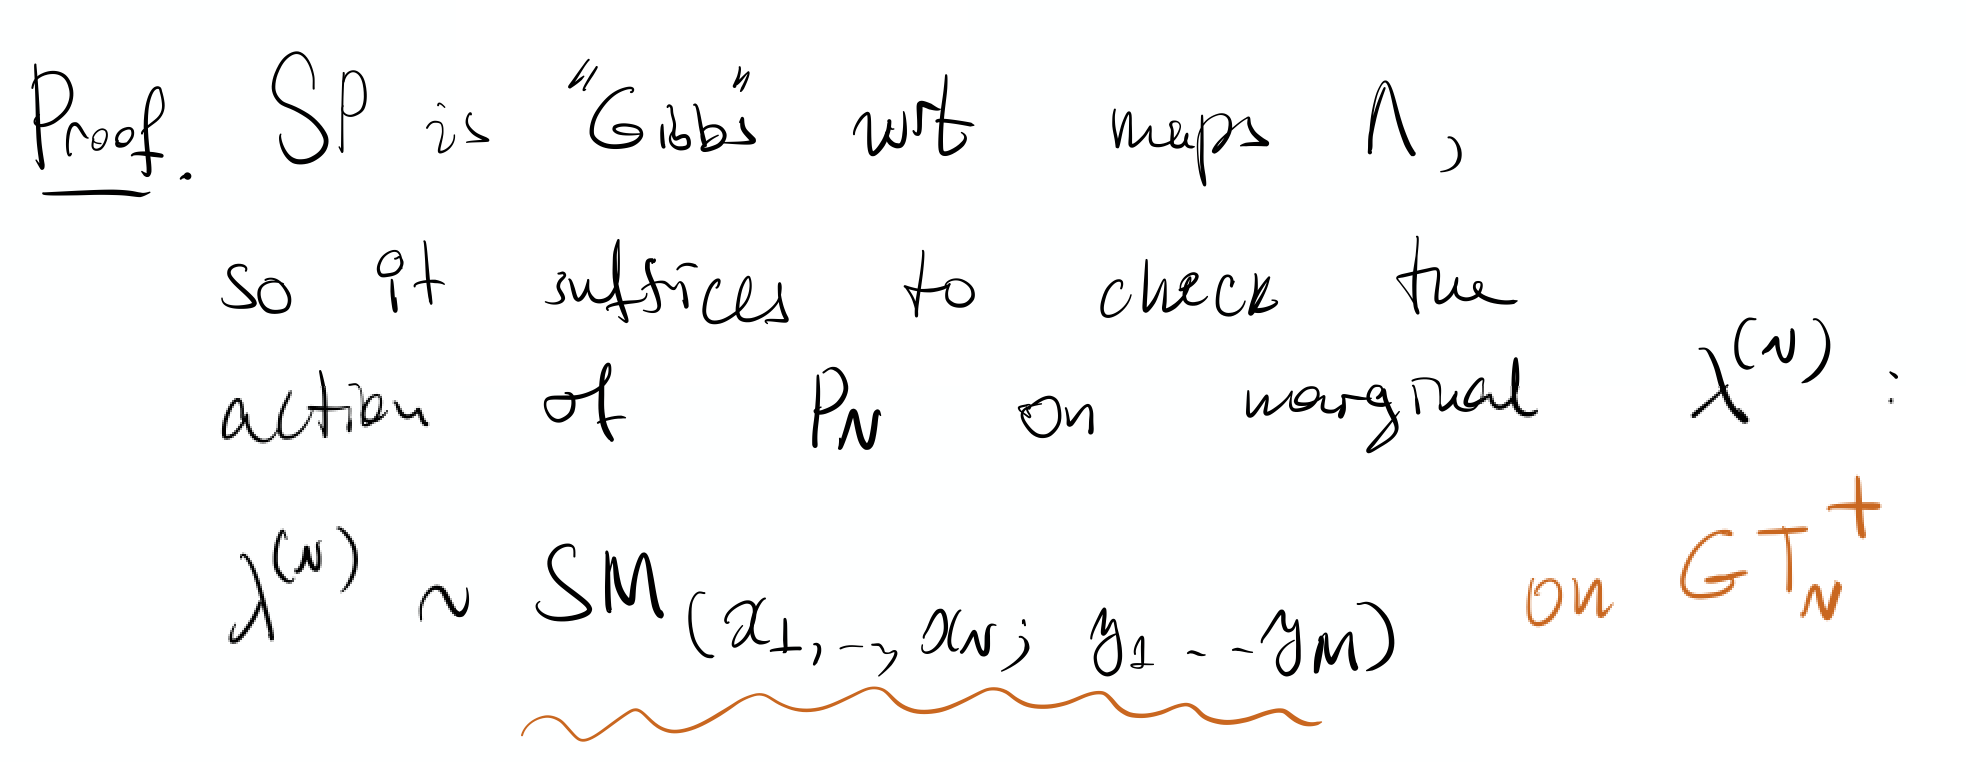 Proof. SP is "Gibbs" wrt maps Λ,
so it suffices to check the
action of P_N on marginal λ^(N) :
λ^(N) ~ SM_(x_1, .., x_N; y_1 .. y_M) on GT_N^+